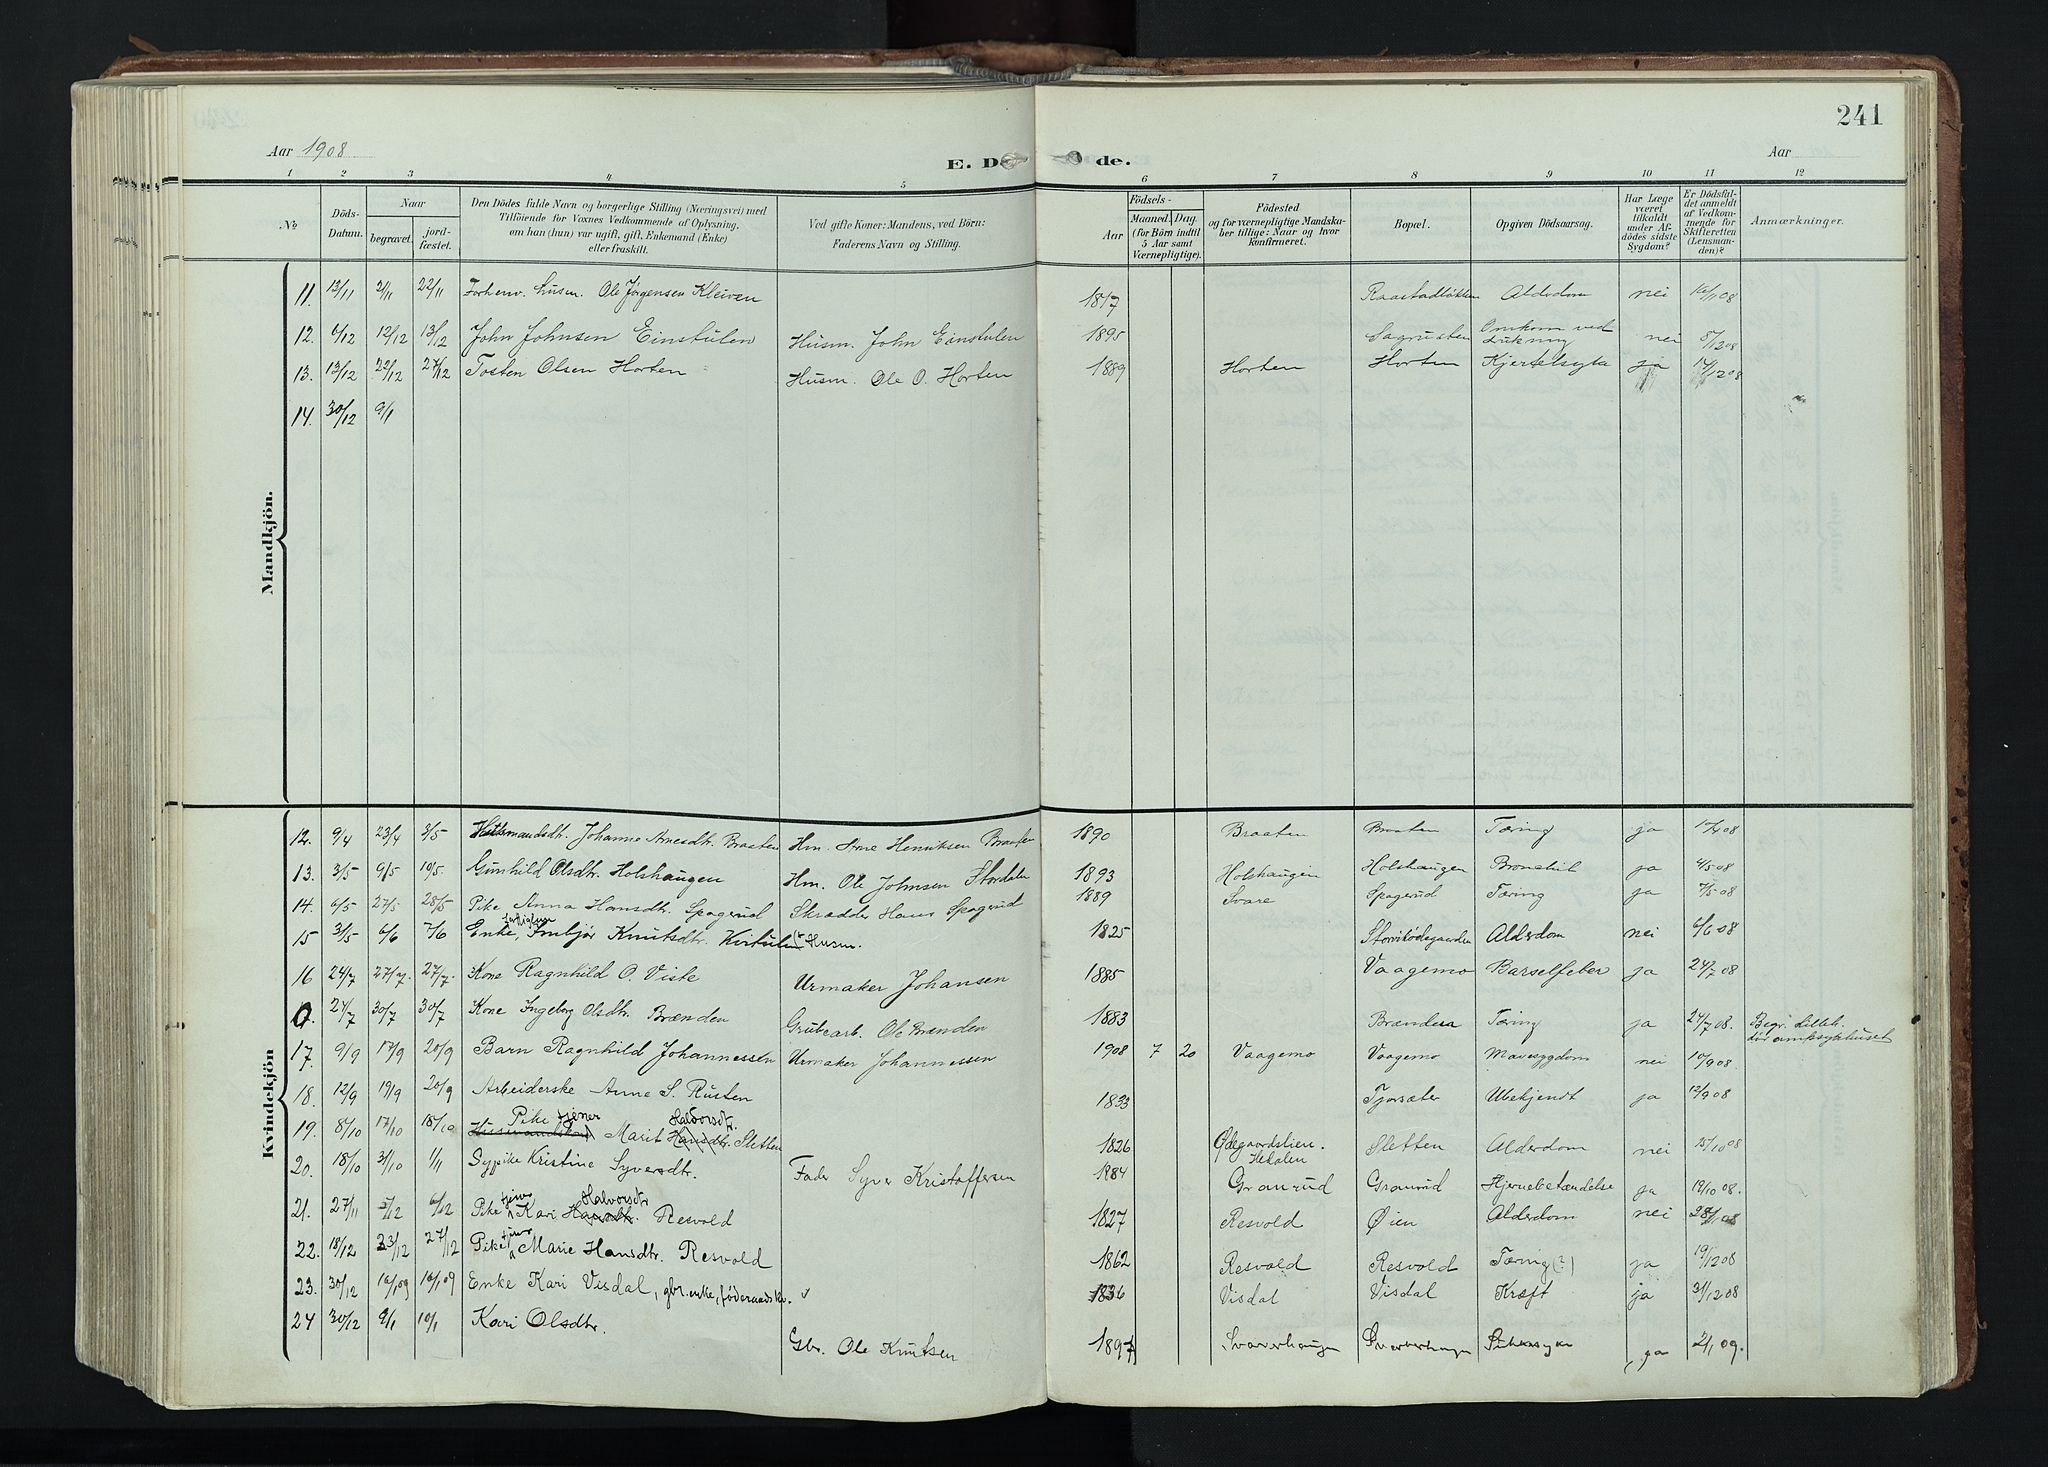 241
Aar 1908
E. Dö de.
Aar
1 2 3 4 5 6 7 8 9 10 11 12
No
Döds-Datum.
Naar
begravet.
jord-fæstet.
Den Dödes fulde Navn og borgerlige Stilling (Næringsvei) med Tilföiende for Voxnes Vedkommende af Oplysning, om han (hun) var ugift, gift, Enkemand (Enke) eller fraskilt.
Ved gifte Koner: Mandens, ved Börn: Faderens Navn og Stilling.
Födsels-
Aar
Maaned. Dag.
(for Börn indtil 5 Aar samt Værnepligtige).
Födested og for værnepligtige Mandskaber tillige: Naar og hvor konfirmeret.
Bopæl.
Opgiven Dödsaarsag.
Har Læge været tilkaldt under Afdödes sidste Sygdom?
Er Dödsfaldet anmeldt af Vedkommende for Skifteretten (Lensmanden)?
Anmærkninger.
Mandkjön.
11. 13/11 21/11 22/11 Forhenv. husm. Ole Jørgensen Kleiven 1817 Raastadløkken Alderdom nei
12. 6/12 12/12 13/12 John Johnsen Einstulen Husm. John Einstulen 1895 Sagrusten Omkom ved nei 8/12 08
13. 13/12 22/12 27/12 Tosten Olsen Horten Husm. Ole O. Horten 1889 Horten Horten Kjertelsyke ja 14/12 08
14. 30/12 9/1
Kvindekjön
12. 9/4 23/4 3/5 Husmandsdtr. Johanne Arnesdtr. Braaten Hm. Arne Henriksen Braaten 1890 Braaten Braaten Tæring ja
13. 3/5 9/5 10/5 Gunhild Olsdtr. Holshaugen Hm. Ole Johnsen Stordalen 1893 Holshaugen Holshaugen Bronchit ja 4/5 08
14. 6/5 27/5 28/5 Pike Anna Hansdtr. Spagerud Skrædder Hans Spagerud 1889 Svare Spagerud Tæring ja 7/5 08
15 31/5 6/6 7/6 Enke, Imbjør Knutsdtr. Husm. 1825 Alderdom nei 6/6 08
16 24/7 27/7. 27/7. Kone Ragnhild O. Viste Urmaker Johansen 1885 Vaagemo Barselfeber ja 24/7 08
0. 24/7 30/7 30/7 Kone Ingeborg Olsdtr. Brænden Grubearb. Ole Brænden 1883 Tæring ja 24/7 08. Begr. Lilleh.
17. 9/9 17/9 20/9 Barn Ragnhild Johannessen Urmaker Johannessen 1908 7 20 Vaagemo Vaagemo Mavesygdom nei 10/9 08.
18. 12/9 19/9 20/9 Arbeiderske Anne S. Rusten 1833 Ubekjendt ja 12/9 08
19. 8/10 17/10 18/10 Pike tjener Marit Hansdtr. Halvorsdtr. Sletten 1826 Ødegaardslien. Hedalen Sletten Alderdom nei
20. 18/10 31/10 1/11 Sypike Kristine Syversdtr. Fader Syver Kristoffersen 1884 Granrud Granrud Hjernebetændelse ja 19/10 08.
21. 27/11 5/12 6/12 Pike Kari Hansdtr. Halvorsdtr Resvold 1827 Resvold Øien Alderdom nei
22. 18/12 23/12 27/12 Pike Marie Hansdtr. Resvold 1862 Resvold Resvold Tæring (?) ja 19/12 08
23. 30/12 10/1 09 10/1 09 Enke Kari Visdal, gbr. enke, føderaadsk. 1836 Visdal Visdal Kræft ja 31/12 08
24 30/12 9/1 10/1 Kari Olsdtr. Gbr. Ole Knutsen 1897 Svarverhaugen Svarverhaugen ja 2/1 09.